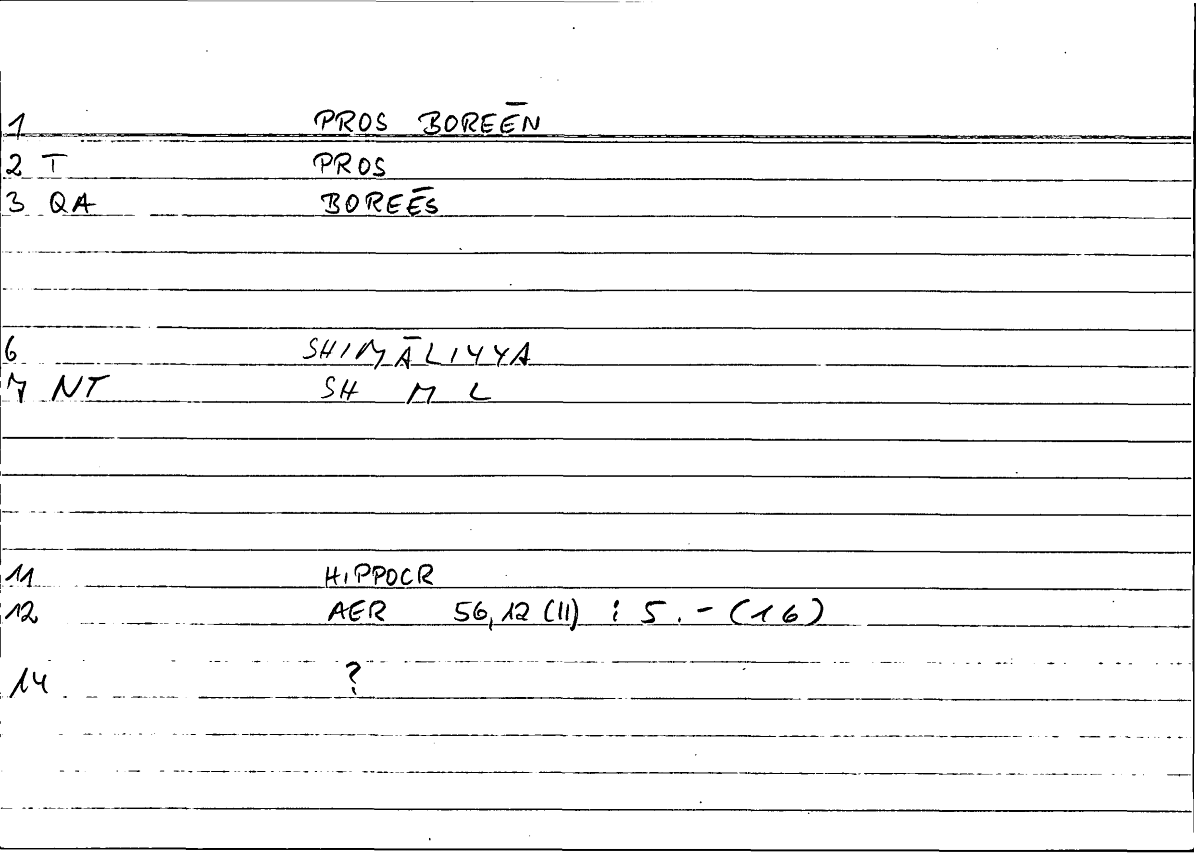 1 PROS BOREĒN
2 T PROS
3 QA BOREĒS
6 SHIMĀLIYYA
7 NT SH M L
11 HIPPOCR
12 AER 56,12 (11) : 5 . - (16)
14 ?